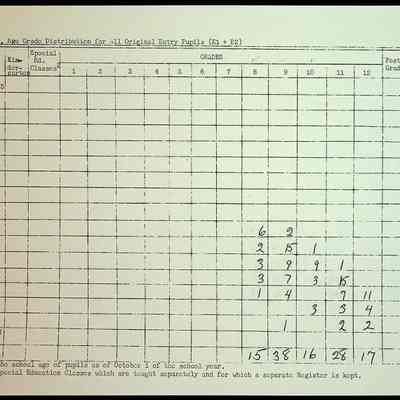 . Age Grade Distribution for All Original Entry Pupils (E1 + E2)
Special GRADES
Kin- Ed. Post
der- Classes 1 2 3 4 5 6 7 8 9 10 11 12 Grad
garten
6 2
2 15 1
3 9 9 1
3 7 3 15
1 4 7 11
3 3 4
1 2 2
15 38 16 28 17
he school age of pupils as of October 1 of the school year.
pecial Education Classes which are taught separately and for which a separate Register is kept.